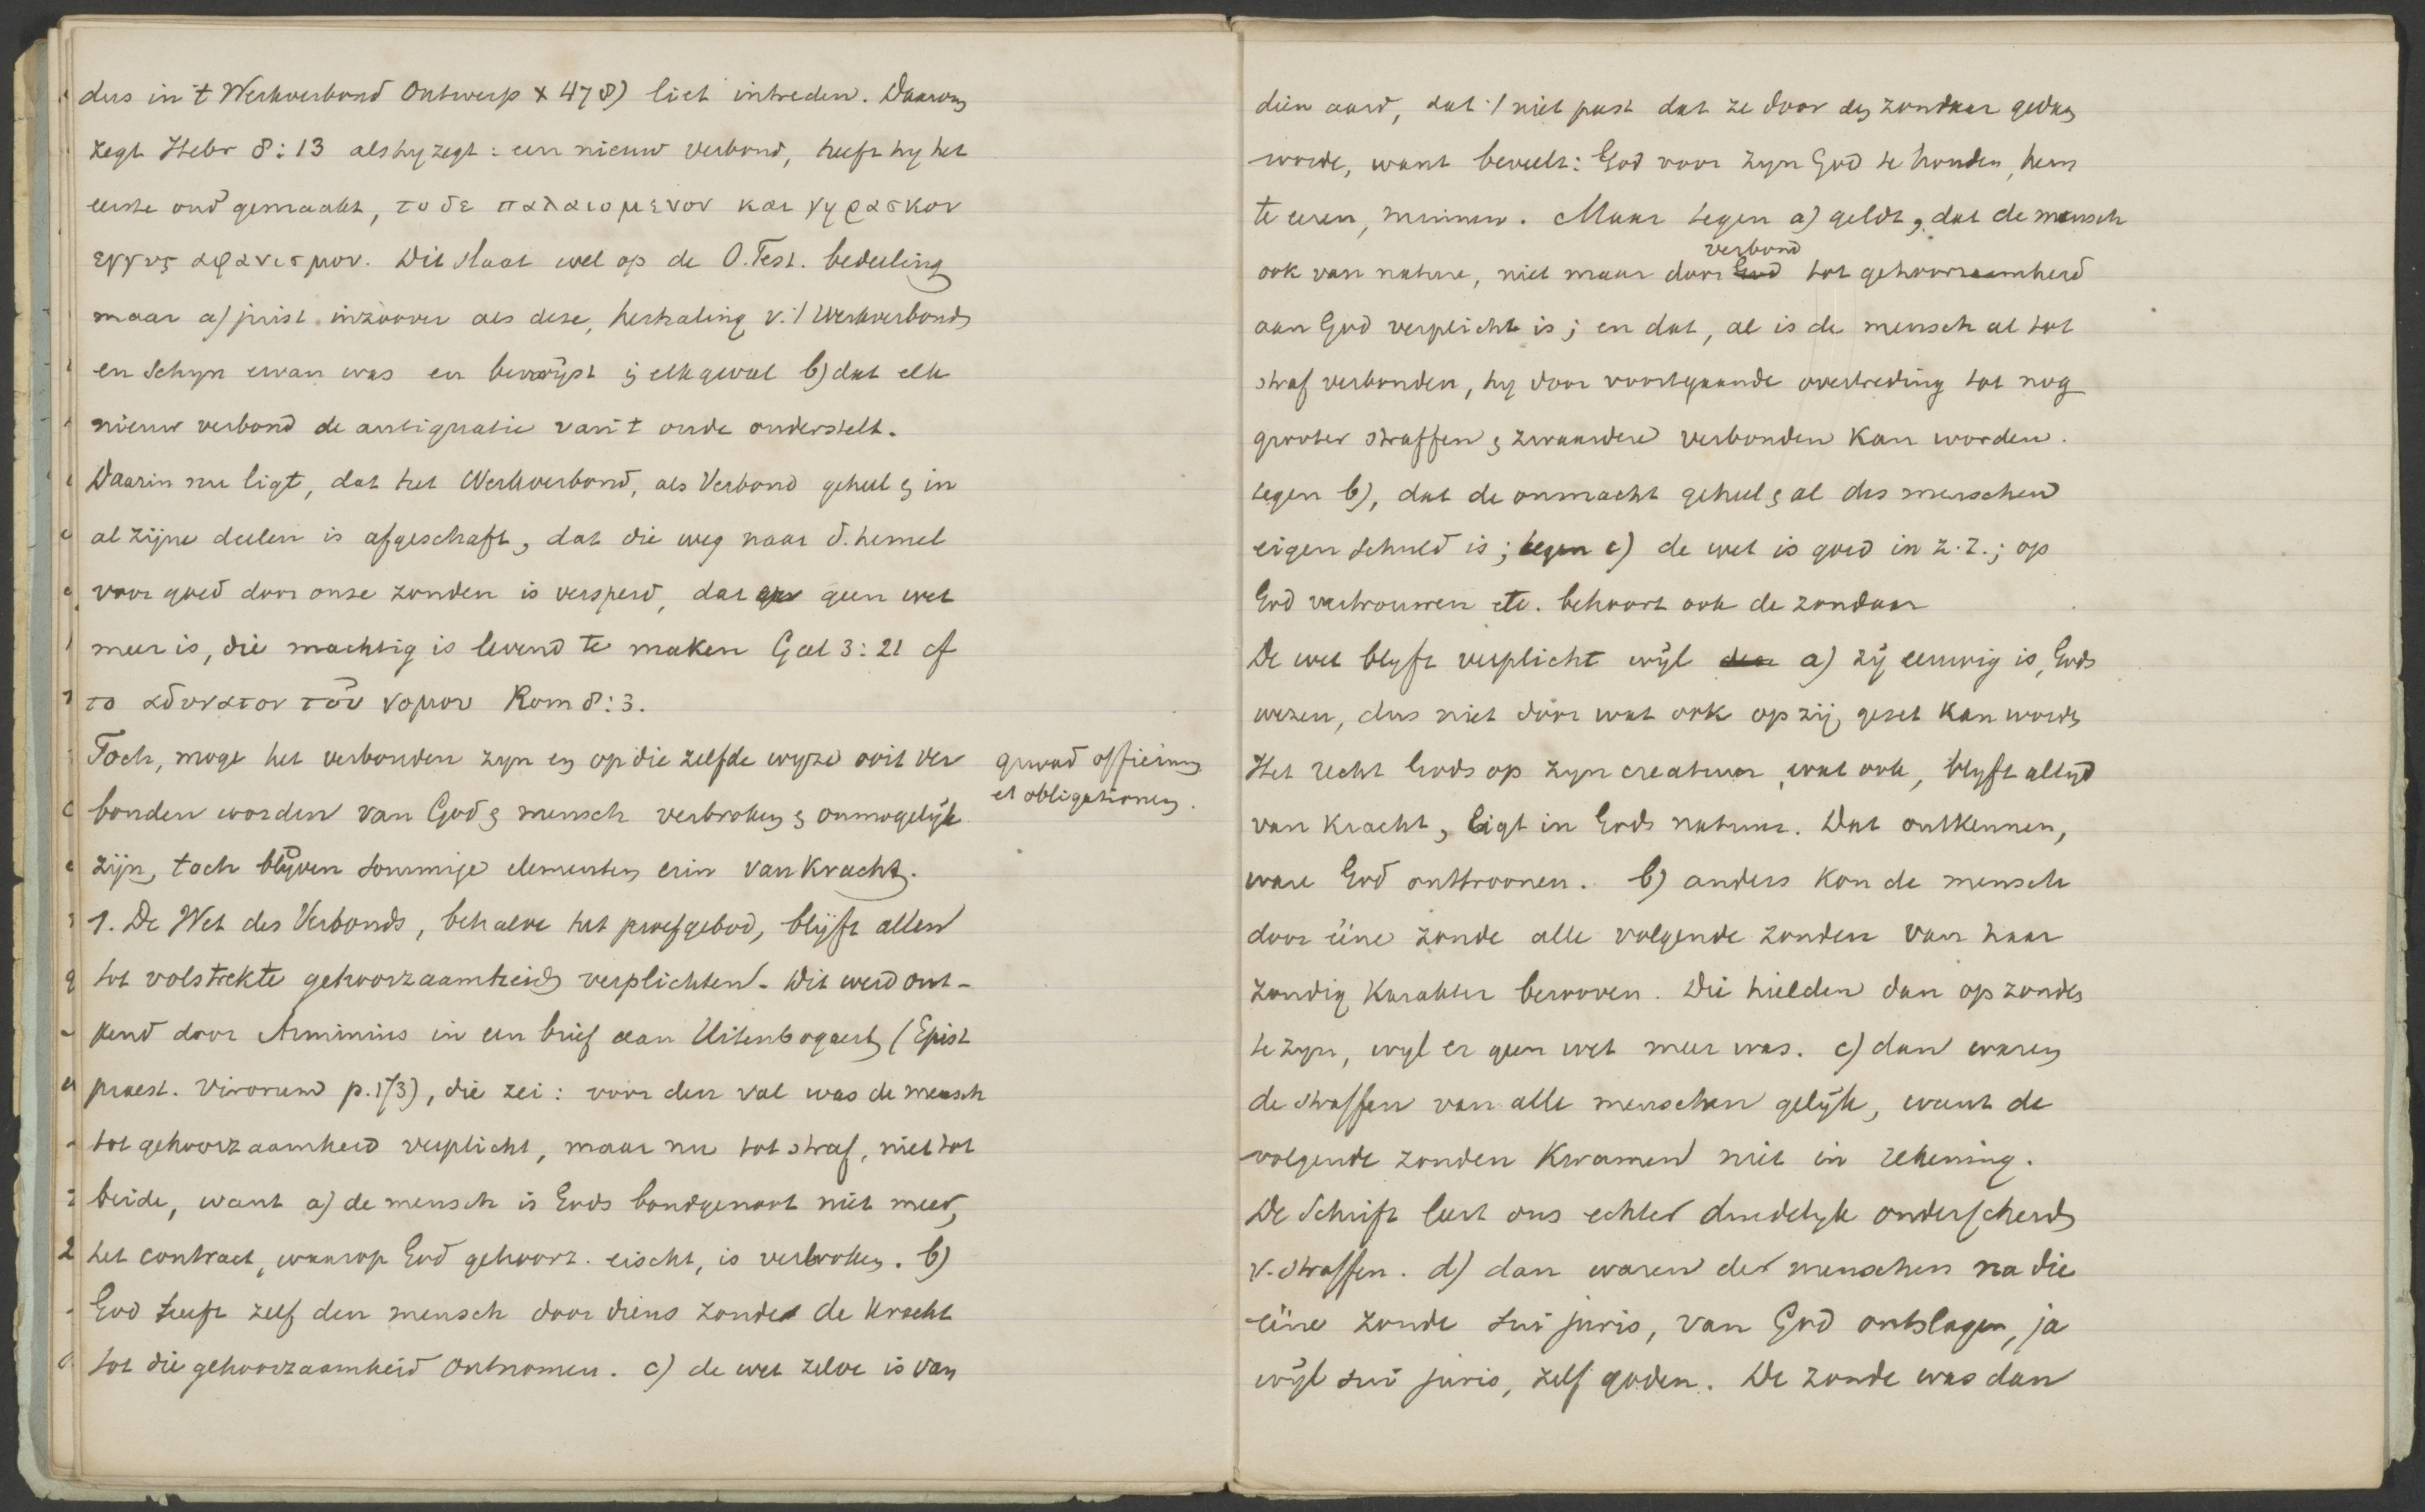 dus in 't Werkverbond Ontwerp × 478) liet intreden. Daarom
zegt Hebr 8:13 als hy zegt: een nieuw verbond, heeft hy het
eerste oud gemaakt, το δε παλαιομενον και γηρασκον
εγγυς αφανισμου. Dit slaat wel op de O.Test. bedeeling
maar a) juist inzoover als deze, herhaling v. 't Werkverbond
en schyn ervan was en bewijst in elk geval b) dat elk
nieuw verbond de antiquatie van 't oude onderstelt.
Daarin nu ligt, dat het Werkverbond, als Verbond geheel en in
al zijne deelen is afgeschaft, dat die weg naar d. hemel
voor goed door onze zonden is versperd, dat er geen wet
meer is, die machtig is levend te maken Gal 3:21 cf
το αδυνατον του νομου Rom 8:3.
Toch, moge het verbonden zyn en op die zelfde wyze ooit ver
bonden worden van God en mensch verbroken en onmogelijk
zijn, toch blijven sommige elementen erin van kracht.
quoad officium
et obligationem.
1. De Wet des Verbonds, behalve het proefgebod, blijft allen
tot volstrekte gehoorzaamheid verplichten. Dit werd ont-
kend door Arminius in een brief aan Uitenbogaert (Epist
praest. virorum p. 173), die zei: voor den val was de mensch
tot gehoorzaamheid verplicht, maar nu tot straf, niet tot
beide, want a) de mensch is Gods bondgenoot niet meer,
het contract, waarop God gehoorz. eischt, is verbroken. b)
God heeft zelf den mensch door diens zonde de kracht
tot die gehoorzaamheid ontnomen. c) de wet zelve is van
dien aard, dat 't niet past dat ze door den zondaar gedaan
worde, want beveelt: God voor zyn God te houden, hem
te eeren, minnen. Maar tegen a) geldt, dat de mensch
ook van nature, niet maar door verbond tot gehoorzaamheid
aan God verplicht is; en dat, al is de mensch al tot
straf verbonden, hy door voortgaande overtreding tot nog
grooter straffen en zwaardere verbonden kan worden.
tegen b), dat de onmacht geheel en al des menschen
eigen schuld is; tegen c) de wet is goed in z. z.; op
God vertrouwen etc. behoort ook de zondaar
De wet blyft verplicht wijl a) zij eeuwig is, Gods
wezen, dus niet door wat ook opzij gezet kan worden
Het recht Gods op zyn creatuur, wat ook, blyft altijd
van kracht, ligt in Gods natuur. Dat ontkennen,
ware God onttroonen. b) anders kon de mensch
door ééne zonde alle volgende zonden van haar
zondig karakter berooven. Die hielden dan op zonden
te zyn, wyl er geen wet meer was. c) dan waren
de straffen van alle menschen gelijk, want de
volgende zonden kwamen niet in rekening.
De Schrift leert ons echter duidelyk onderscheid
v. straffen. d) dan waren der menschen na die
ééne zonde sui juris, van God ontslagen, ja
wijl sui juris, zelf goden. De zonde was dan